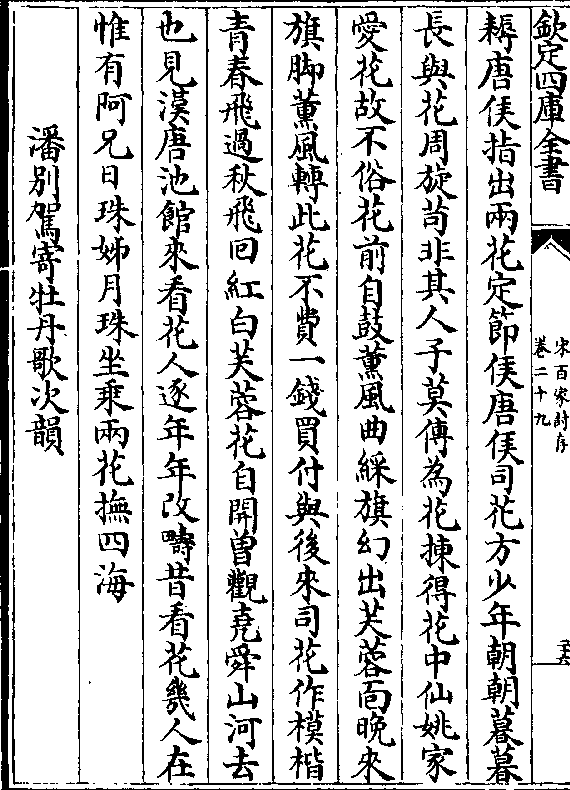 欽定四庫全書
宋百家詩存
卷二十九
耨唐侯指出兩花定節侯唐侯司花方少年朝朝暮暮
長與花周旋茍非其人子莫傳為花揀得花中仙姚家
愛花故不俗花前自鼓薰風曲綵旗幻出芙蓉面晚來
旗脚薰風轉此花不費一錢買付與後來司花作模楷
青春飛過秋飛回紅白芙蓉花自開曽觀堯舜山河去
也見漢唐池館來看花人逐年年改疇昔看花幾人在
惟有阿兄日珠姊月珠坐乘兩花撫四海
潘别駕寄牡丹歌次韻